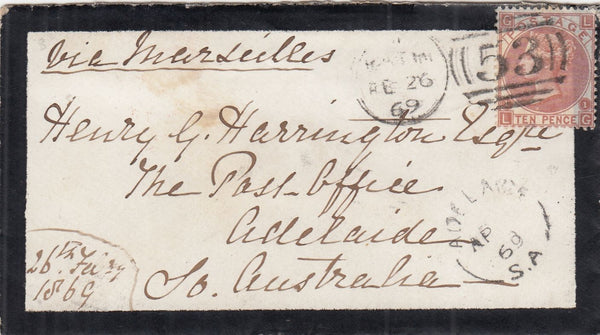 via Marseilles
FE 26
69
53
G L
POSTAGE
1
L TEN PENCE G
Henry G. Harrington Esqre
The Post-Office
Adelaide
So. Australia
26th Fe
1869
ADELAIDE
AP
69
S A